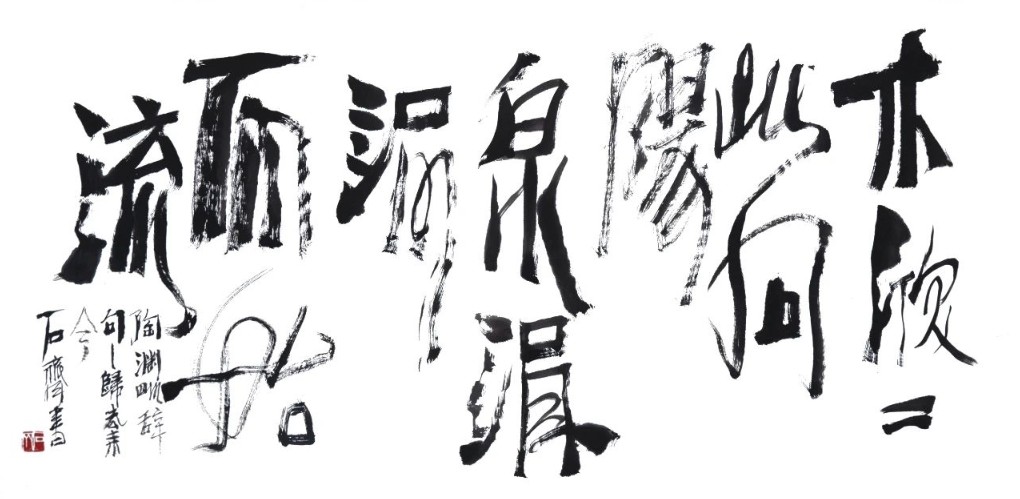 木欣二
此向
陽
泉涓
涓
而始
流
陶淵明辭
句之歸去来
兮
石齋書